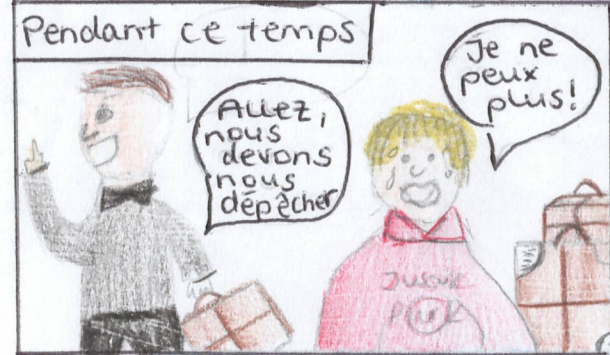 Pendant ce temps
Allez,
nous
devons
nous
dépêcher
Je ne
peux
plus!